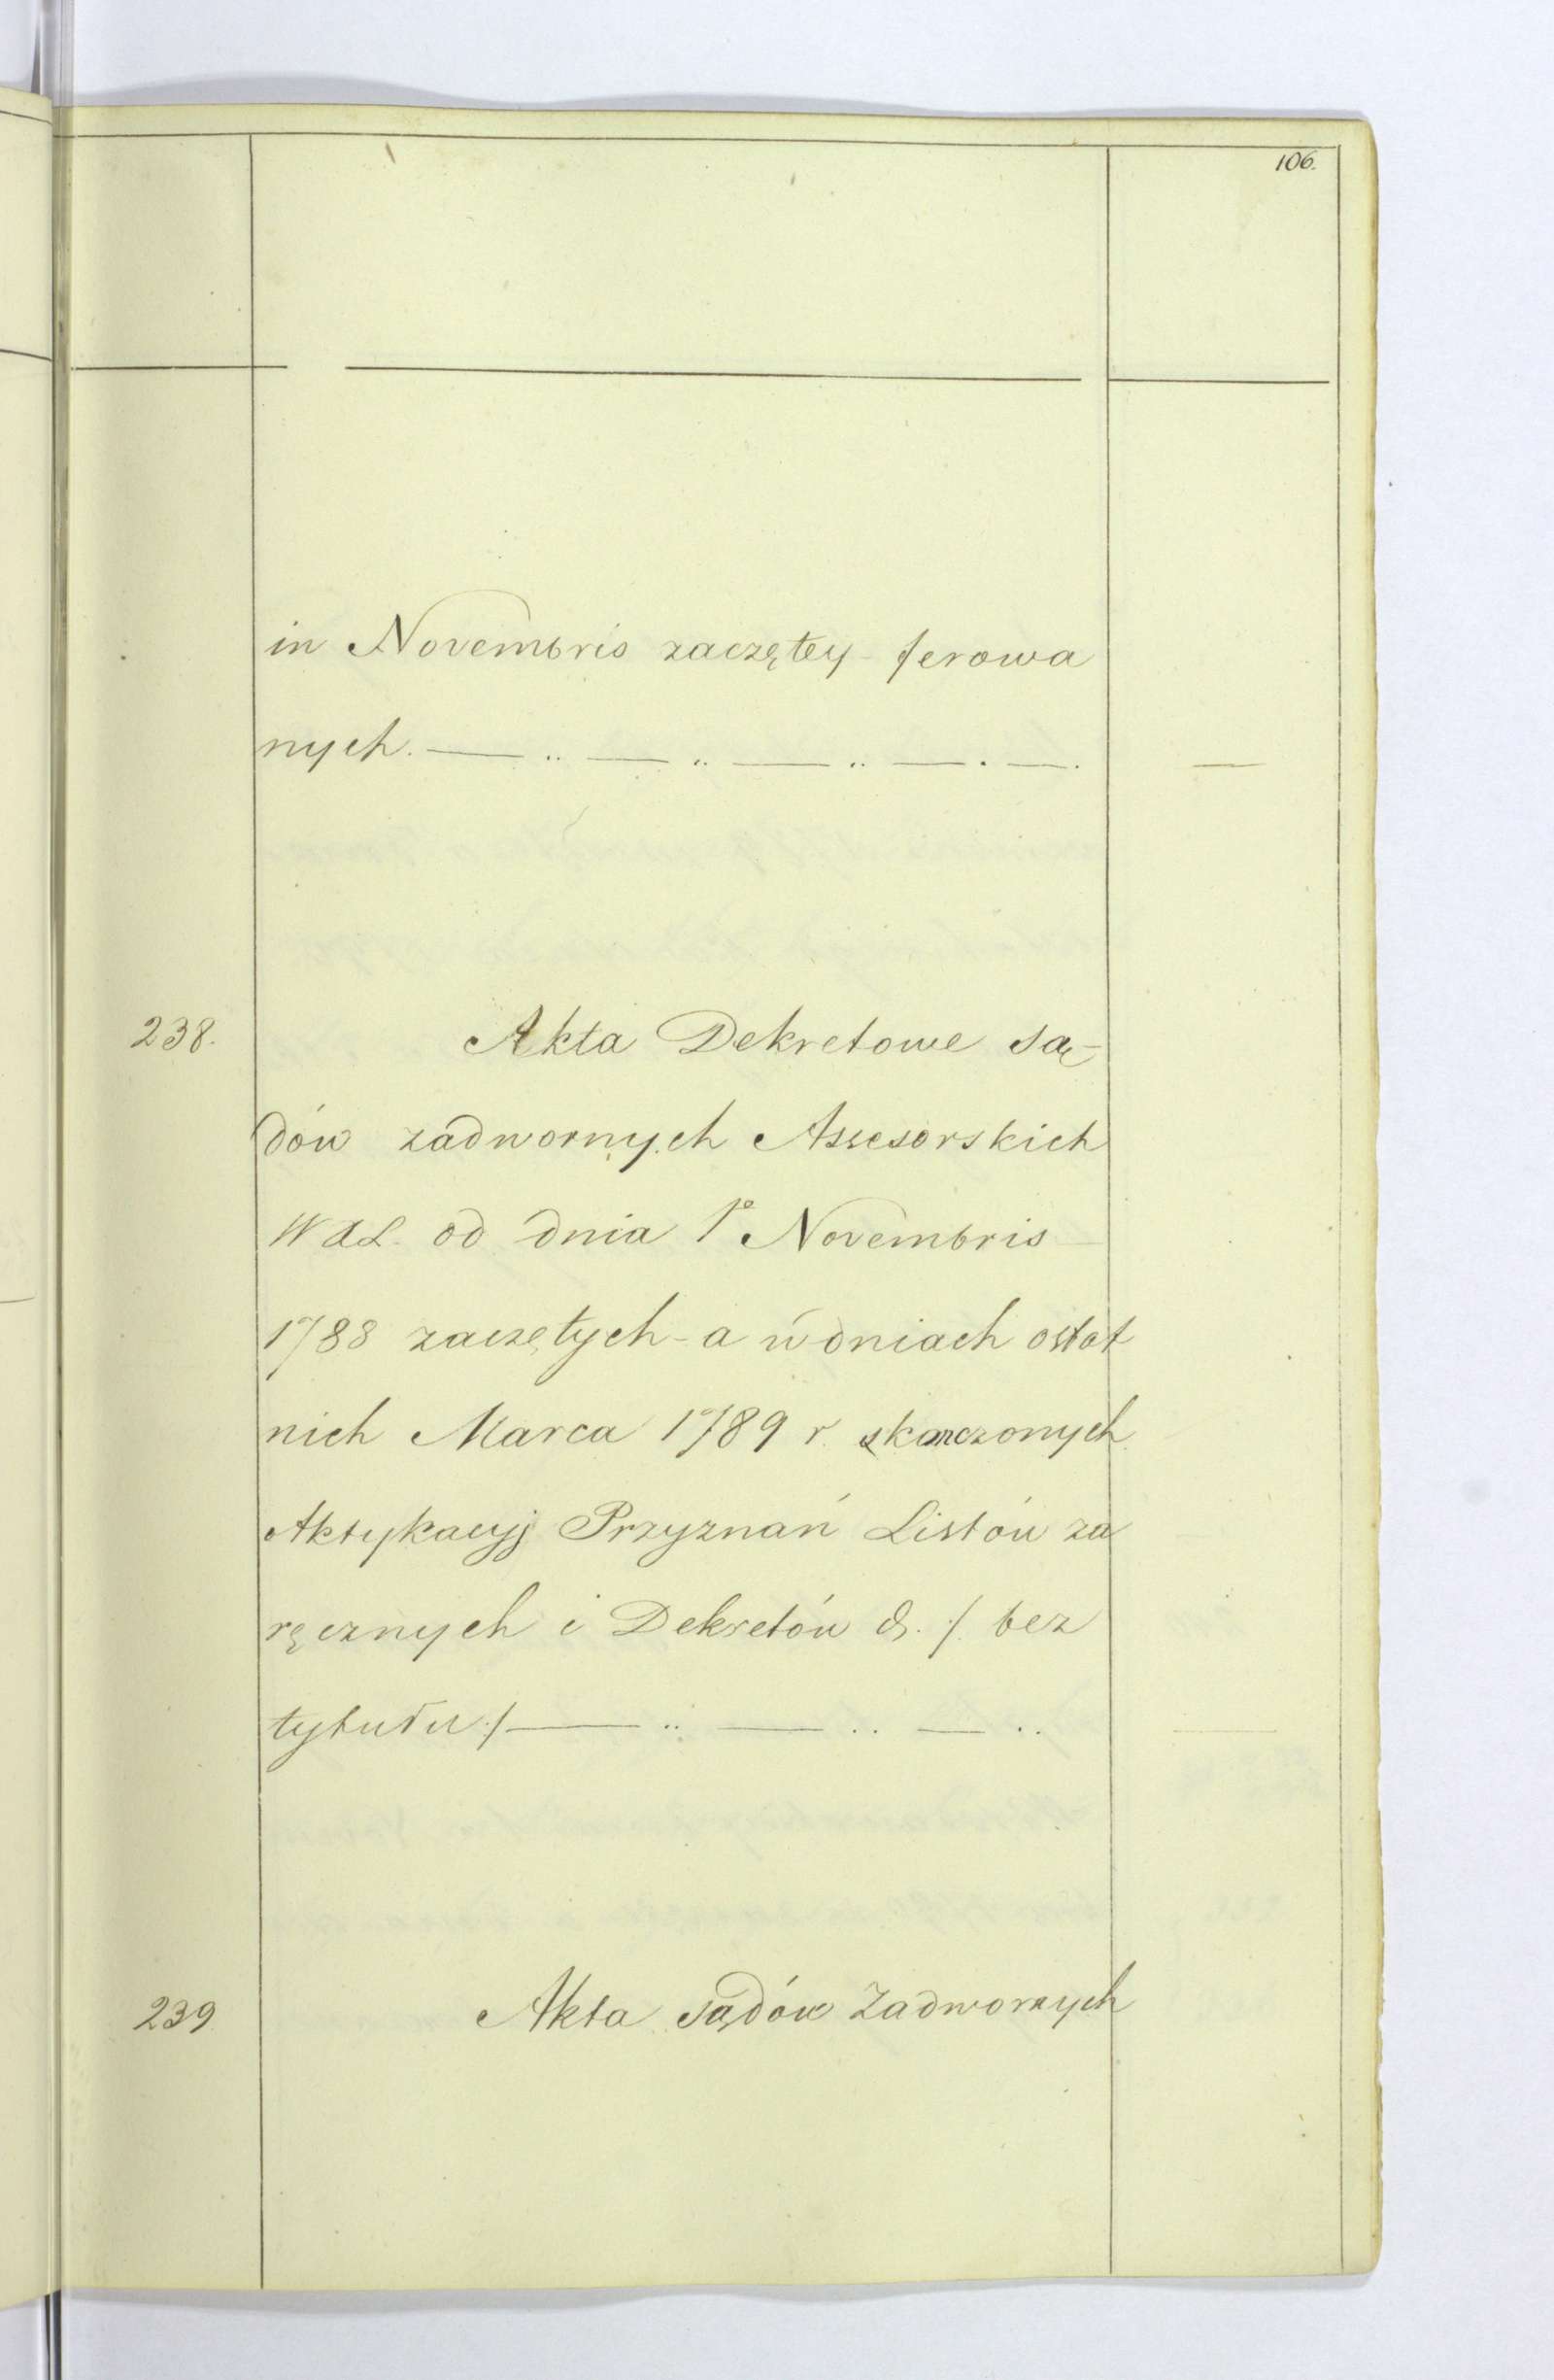 106.
in Novembris zaczętey ferowa
nych. — .. — .. — .. — . — . —
238. Akta Dekretowe Są-
dów zadwornych Assesorskich
WXL od dnia 1º Novembris
1788 zaczętych a w dniach ostat
nich Marca 1789 r. skończonych
Aktykacyj Przyznań Listów za
ręcznych i Dekretów /. bez
tytułu ./ — .. — .. — .. —
239 Akta Sądów Zadwornych